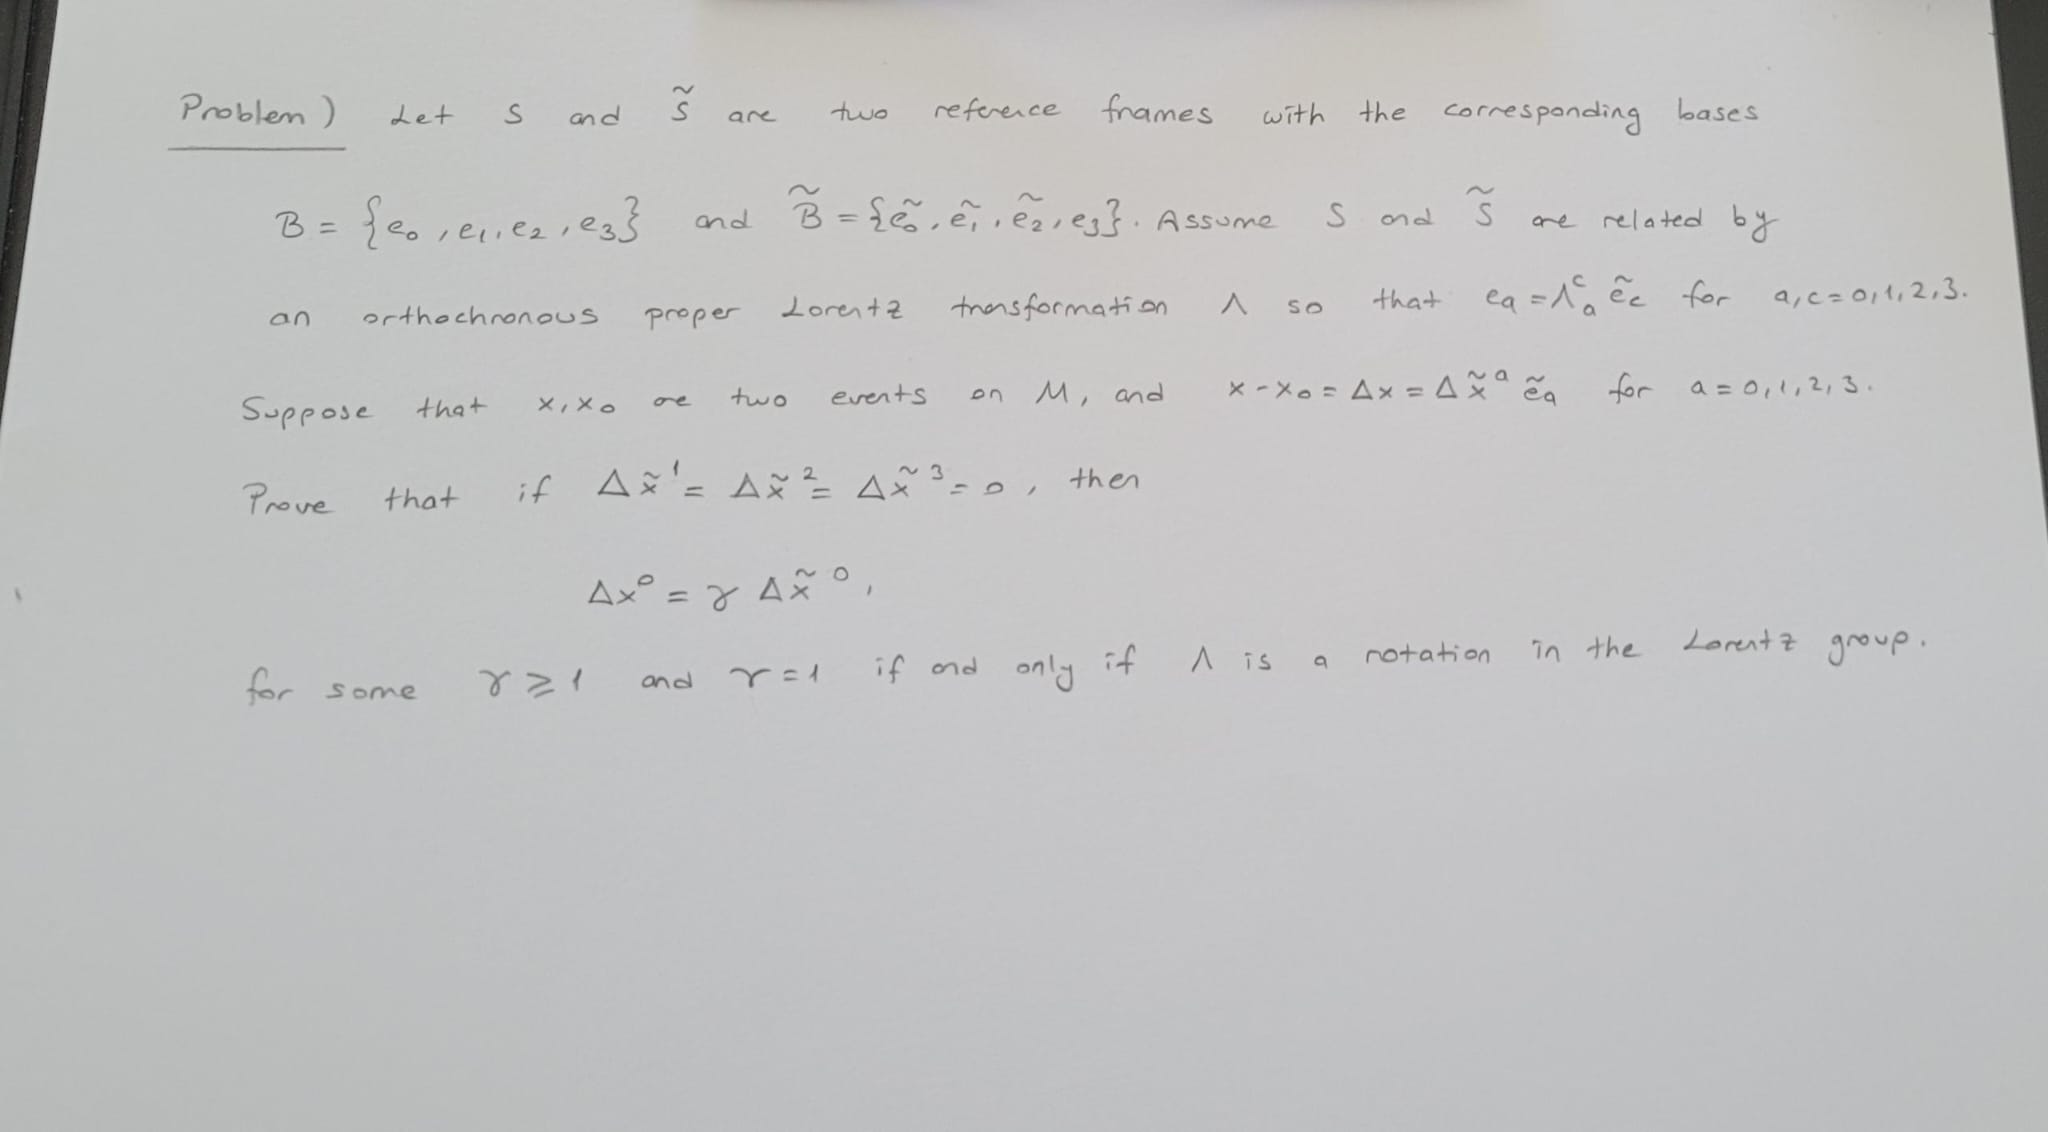 Problem) Let S and S̃ are two reference frames with the corresponding bases
B = {e₀, e₁, e₂, e₃} and B̃ = {ẽ₀, ẽ₁, ẽ₂, e₃}. Assume S and S̃ are related by
an orthochronous proper Lorentz transformation Λ so that eₐ = Λᶜₐ ẽ_c for a,c = 0,1,2,3.
Suppose that x, x₀ are two events on M, and x - x₀ = Δx = Δx̃ᵃ ẽₐ for a = 0,1,2,3.
Prove that if Δx̃¹ = Δx̃² = Δx̃³ = 0, then
Δx⁰ = γ Δx̃⁰,
for some γ ≥ 1 and γ = 1 if and only if Λ is a rotation in the Lorentz group.